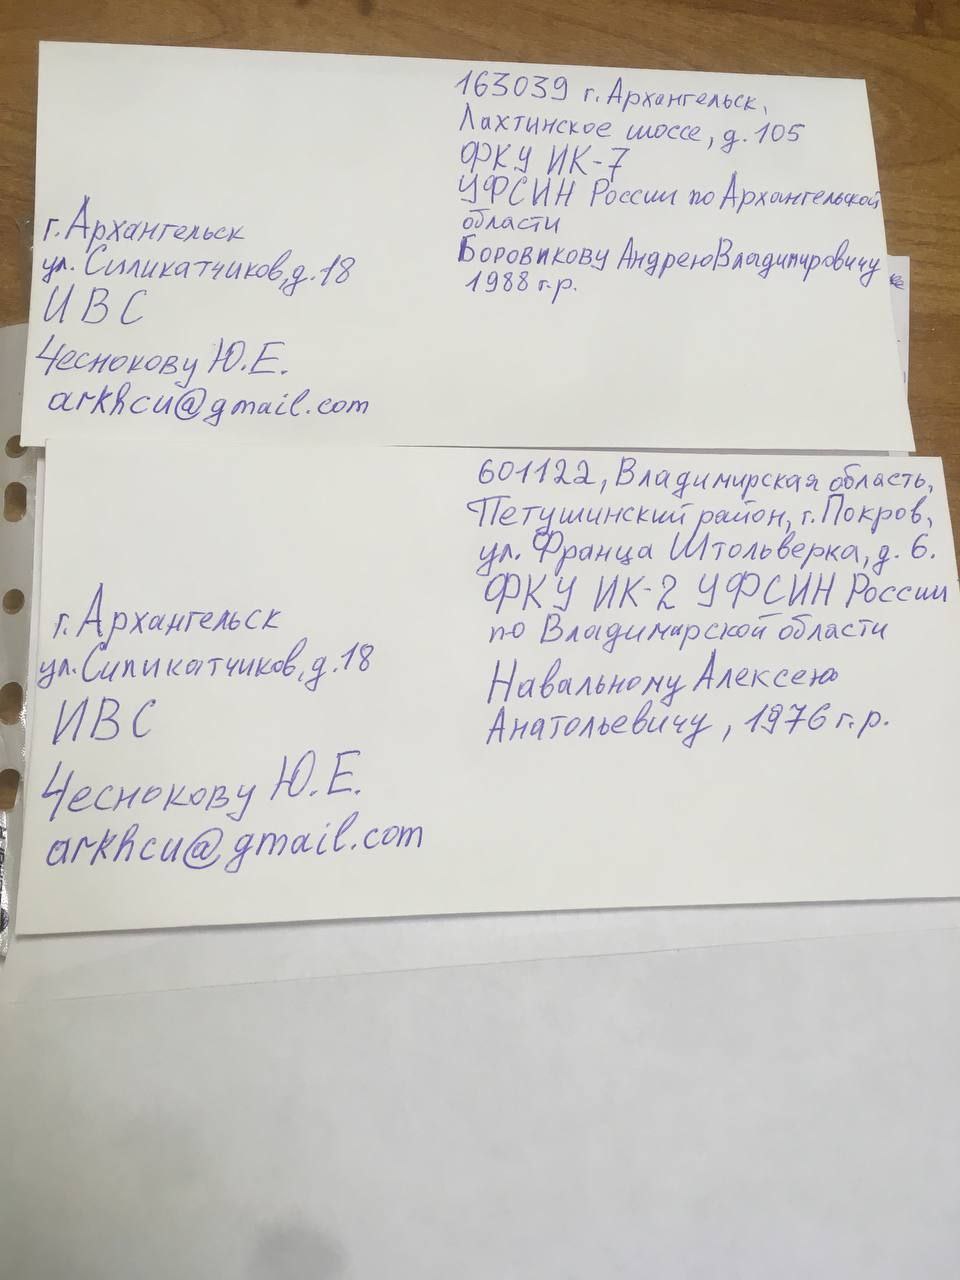 163039 г. Архангельск,
Лахтинское шоссе, д. 105
ФКУ ИК-7
УФСИН России по Архангельской
области
Боровикову Андрею Владимировичу
1988 г.р.
г. Архангельск
ул. Силикатчиков, д. 18
ИВС
Чеснокову Ю.Е.
arkhcu@gmail.com
601122, Владимирская область,
Петушинский район, г. Покров,
ул. Франца Штольверка, д. 6.
ФКУ ИК-2 УФСИН России
по Владимирской области
Навальному Алексею
Анатольевичу, 1976 г.р.
г. Архангельск
ул. Силикатчиков, д. 18
ИВС
Чеснокову Ю.Е.
arkhcu@gmail.com